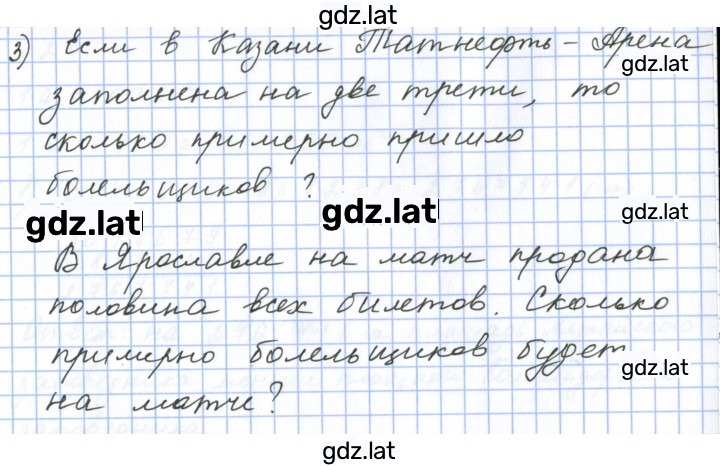 gdz.lat
3) Если в Казани Татнефть - Арена
gdz.lat
заполнена на две трети, то
сколько примерно пришло
болельщиков ?
gdz.lat gdz.lat gdz.lat
В Ярославле на матч продана
половина всех билетов. Сколько
примерно болельщиков будет
gdz.lat
на матче?
gdz.lat